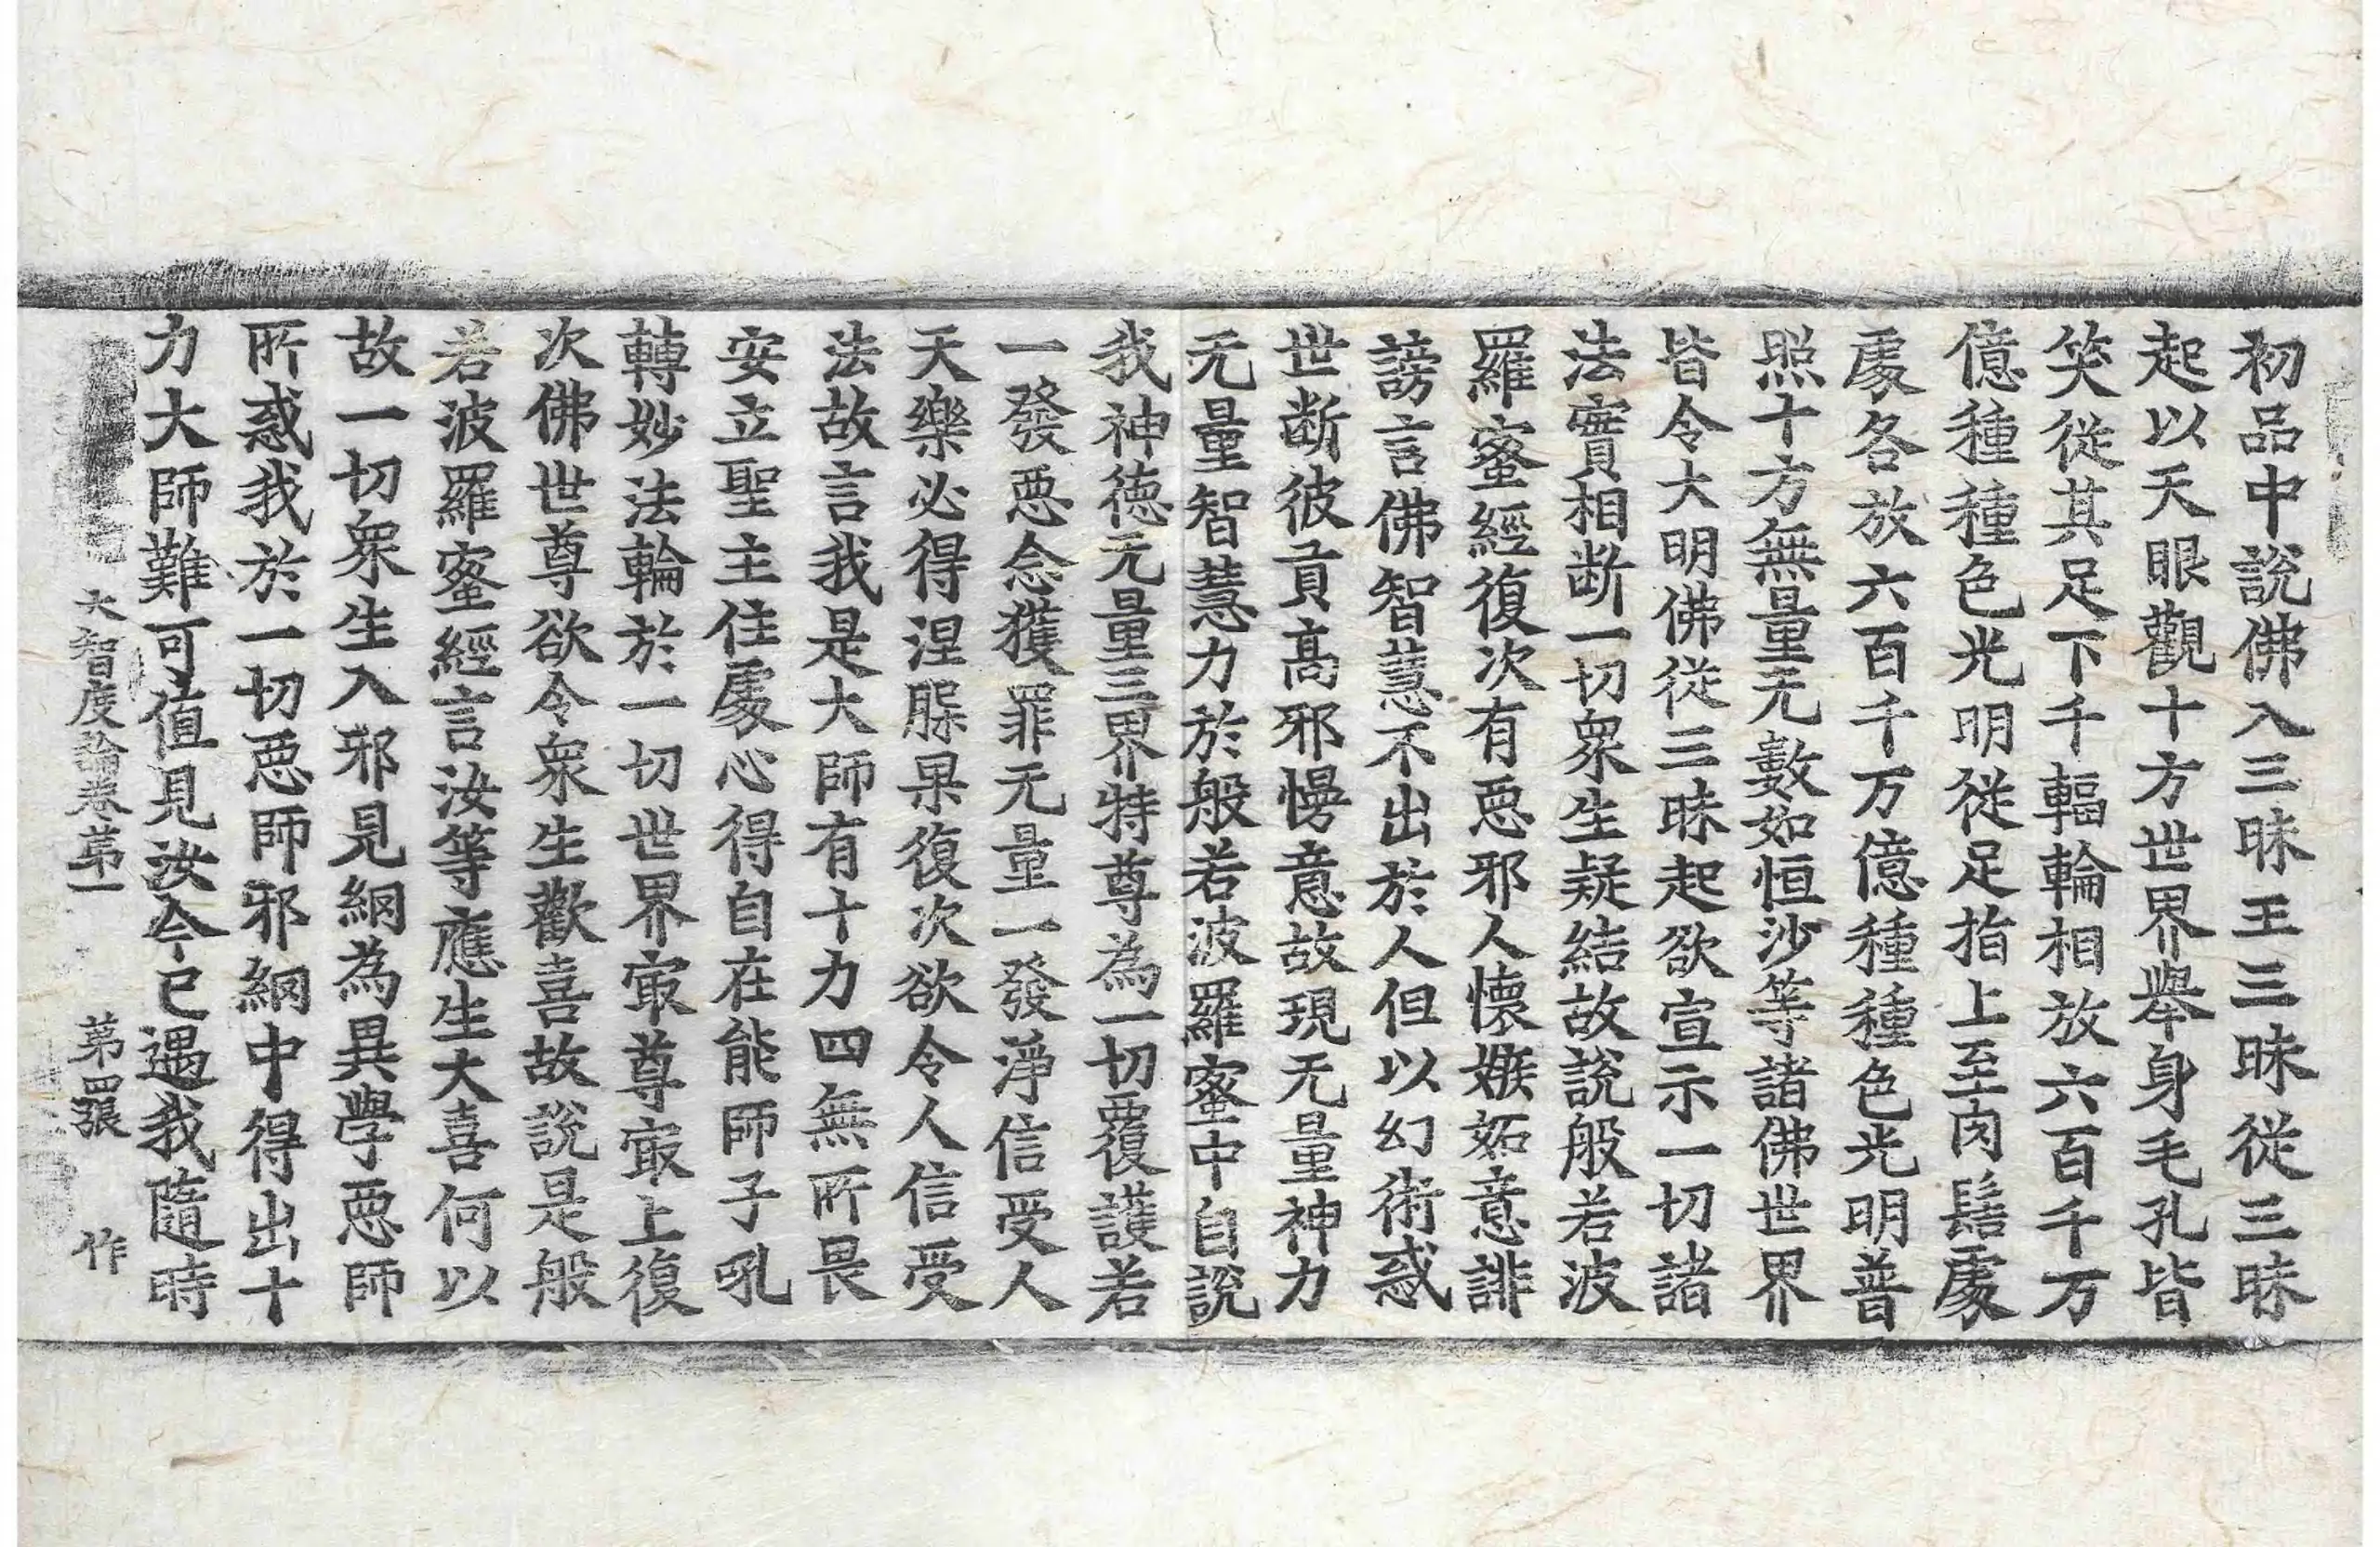 初品中說佛入三昧王三昧從三昧
起以天眼觀十方世界舉身毛孔皆
笑從其足下千輻輪相放六百千万
億種種色光明從足指上至肉髻處
處各放六百千万億種種色光明普
照十方無量无數如恒沙等諸佛世界
皆令大明佛從三昧起欲宣示一切諸
法實相斷一切衆生疑結故說般若波
羅蜜經復次有惡邪人懷嫉妬意誹
謗言佛智慧不出於人但以幻術惑
世斷彼貢高邪慢意故現无量神力
无量智慧力於般若波羅蜜中自說
我神德无量三界特尊為一切覆護若
一發惡念獲罪无量一發淨信受人
天樂必得涅槃果復次欲令人信受
法故言我是大師有十力四無所畏
安立聖主住處心得自在能師子吼
轉妙法輪於一切世界㝡尊㝡上復
次佛世尊欲令衆生歡喜故說是般
若波羅蜜經言汝等應生大喜何以
故一切衆生入邪見網為異學惡師
所惑我於一切惡師邪網中得出十
力大師難可值見汝今已遇我隨時
大智度論卷第一 第四張 作